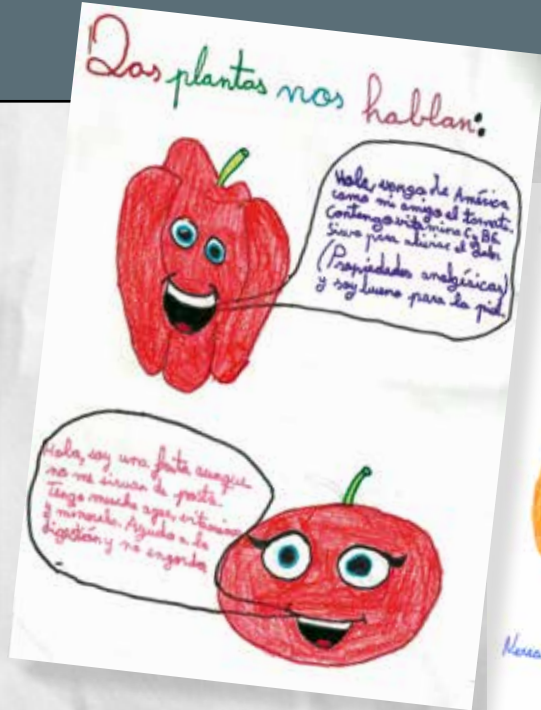 Dos plantas nos hablan:
Hola, vengo de América
como mi amigo el tomate.
Contengo vitamina C, B6.
Sirvo para aliviar el dolor
(Propiedades analgésicas)
y soy bueno para la piel.
Hola, soy una fruta aunque
no me sirvan de postre.
Tengo mucha agua, vitaminas
y minerales. Ayudo a la
digestión y no engordo